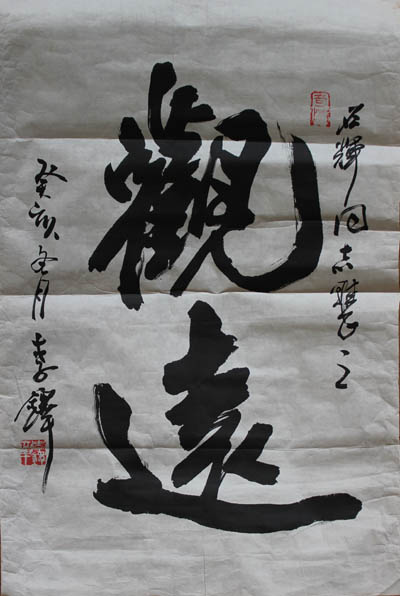 石輝同志雅正
觀遠
癸亥冬月李鐸